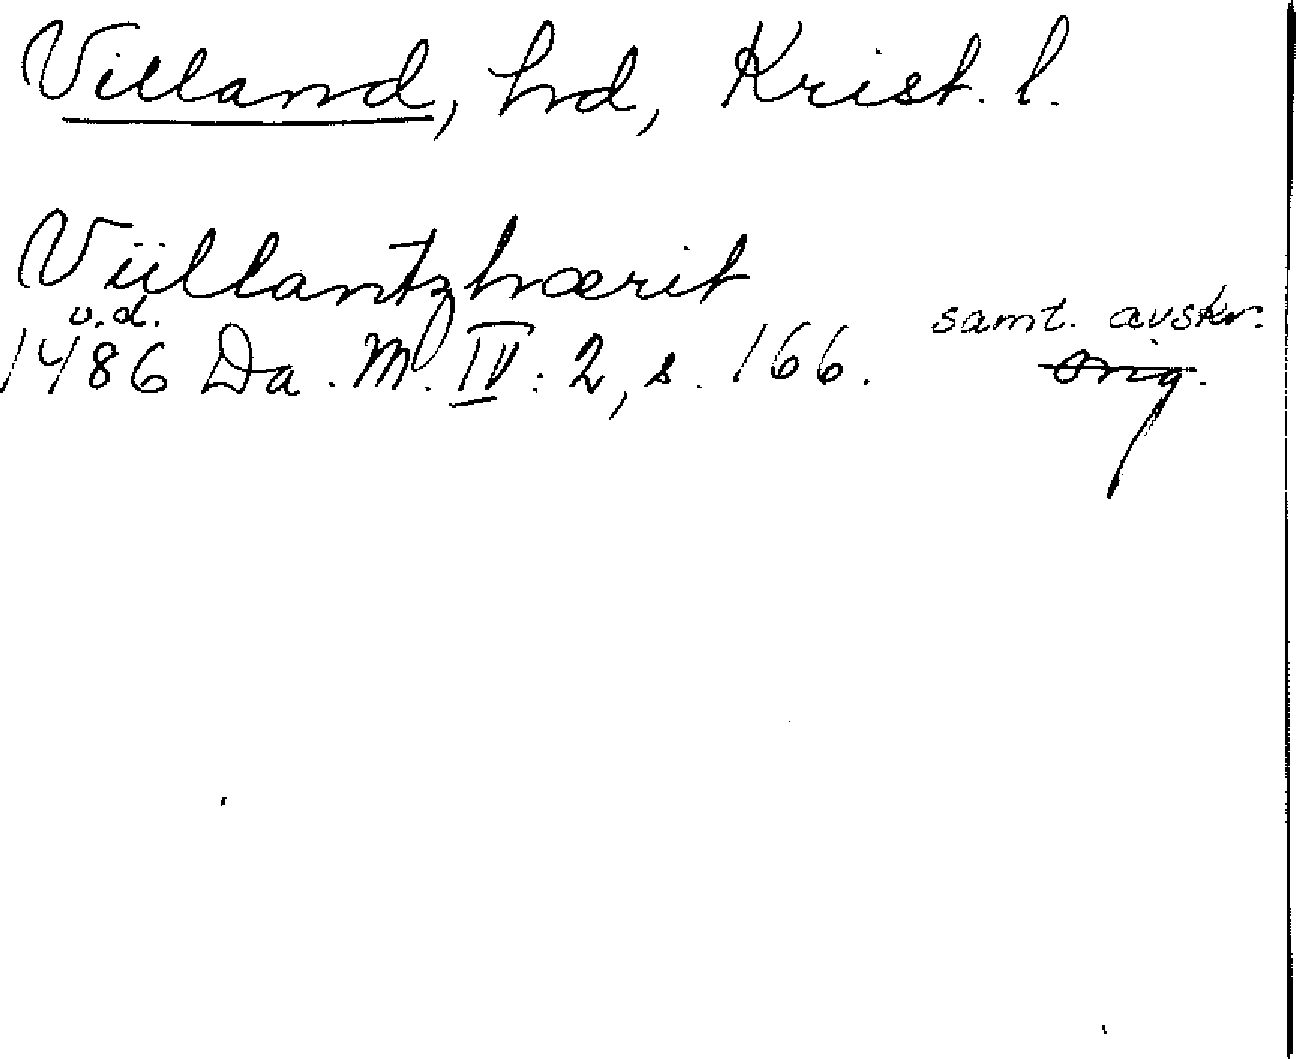 Villand, hd, Krist. l.
Viillantzhærit
u.d.
1486 Da. M. IV: 2, s. 166. samt. avskr.
Orig.